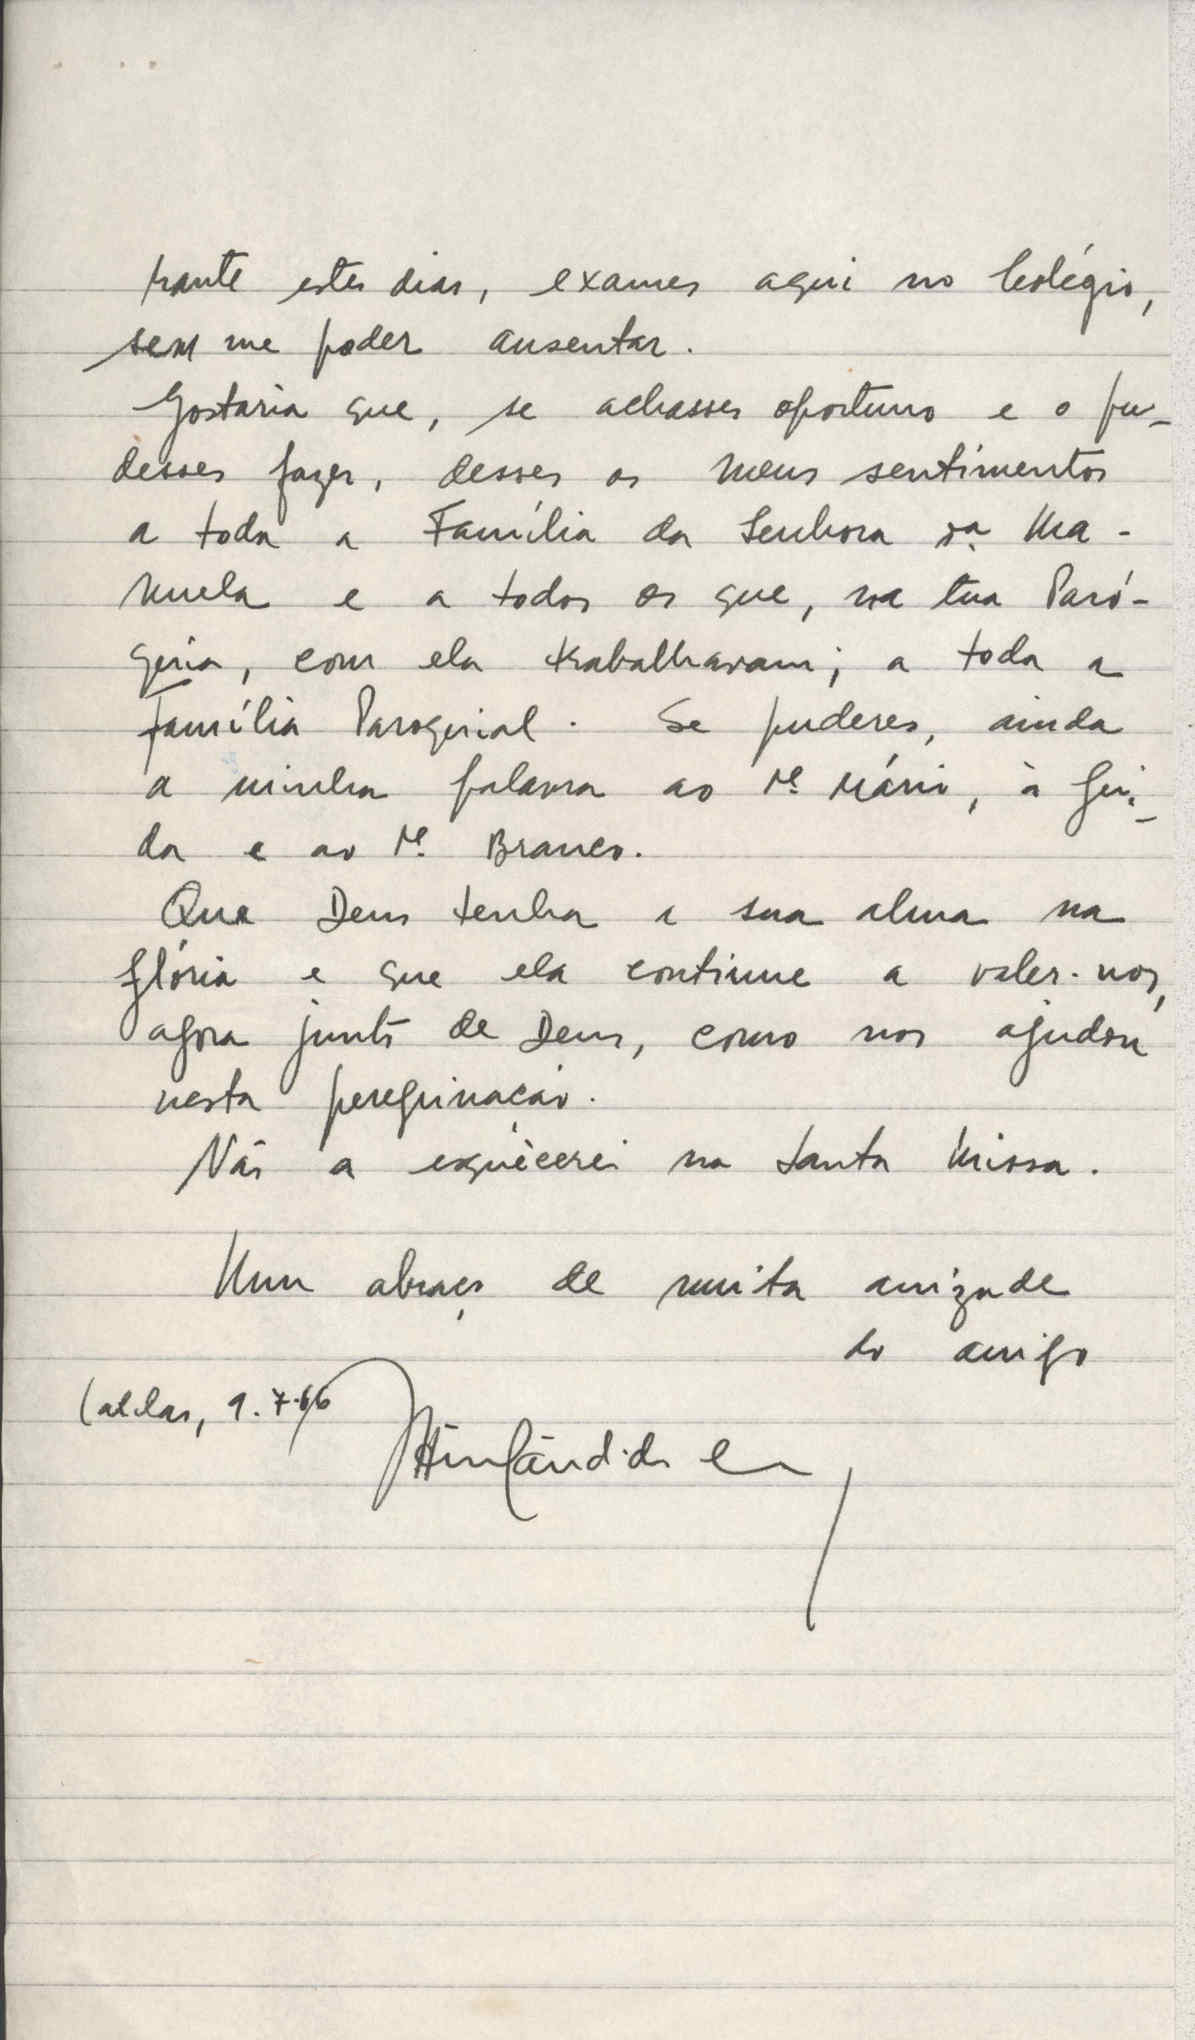 rante estes dias, exames aqui no Colégio,
sem me poder ausentar.
Gostaria que, se achasses oportuno e o pu-
desses fazer, desses os meus sentimentos
a toda a Família da Senhora Ma-
nuela e a todos os que, na tua Paró-
quia, com ela trabalhavam; a toda a
Família Paroquial. Se puderes, ainda
a minha palavra ao Pe. Mário, à Gui-
da e ao Pe. Branco.
Que Deus tenha a sua alma na
glória e que ela continue a valer-nos,
agora junto de Deus, como nos ajudou
nesta peregrinação.
Não a esquècerei na Santa Missa.
Num abraço de muita amizade
do amigo
Caldas, 9.7.66
Cândido